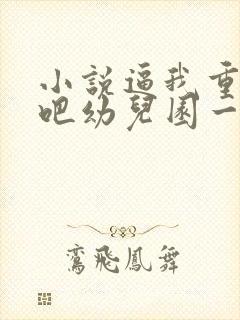 小說逼我重
吧幼兒園一
鸞飛鳳舞